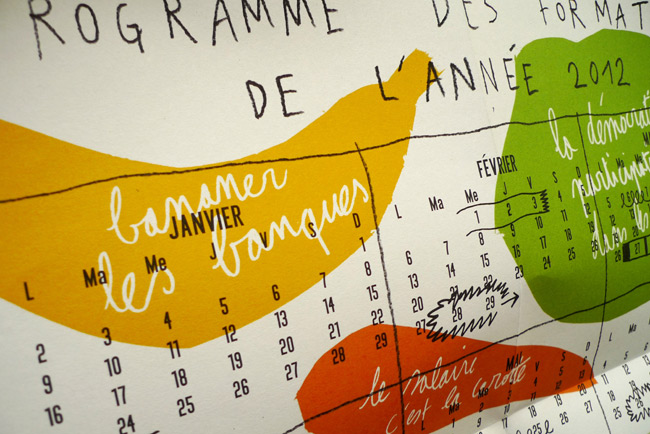 ROGRAMME DES FORMAT
DE L'ANNÉE 2012
bananer
les banques
JANVIER
L Ma Me J V S D
1
2 3 4 5 6 7 8
9 10 11 12 13 14 15
16 17 18 19 20 21 22
24 25 26 27 28 29
FÉVRIER
L Ma Me J V S
1 2 3 4
6 7 8 9 10 11
13 14 15 16 17
20 21 22 23
27 28 29
la démocrat
participat
dans les
le salaire
c'est la carotte
MAI